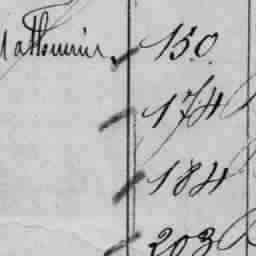 Mathurin 150
174
184
203